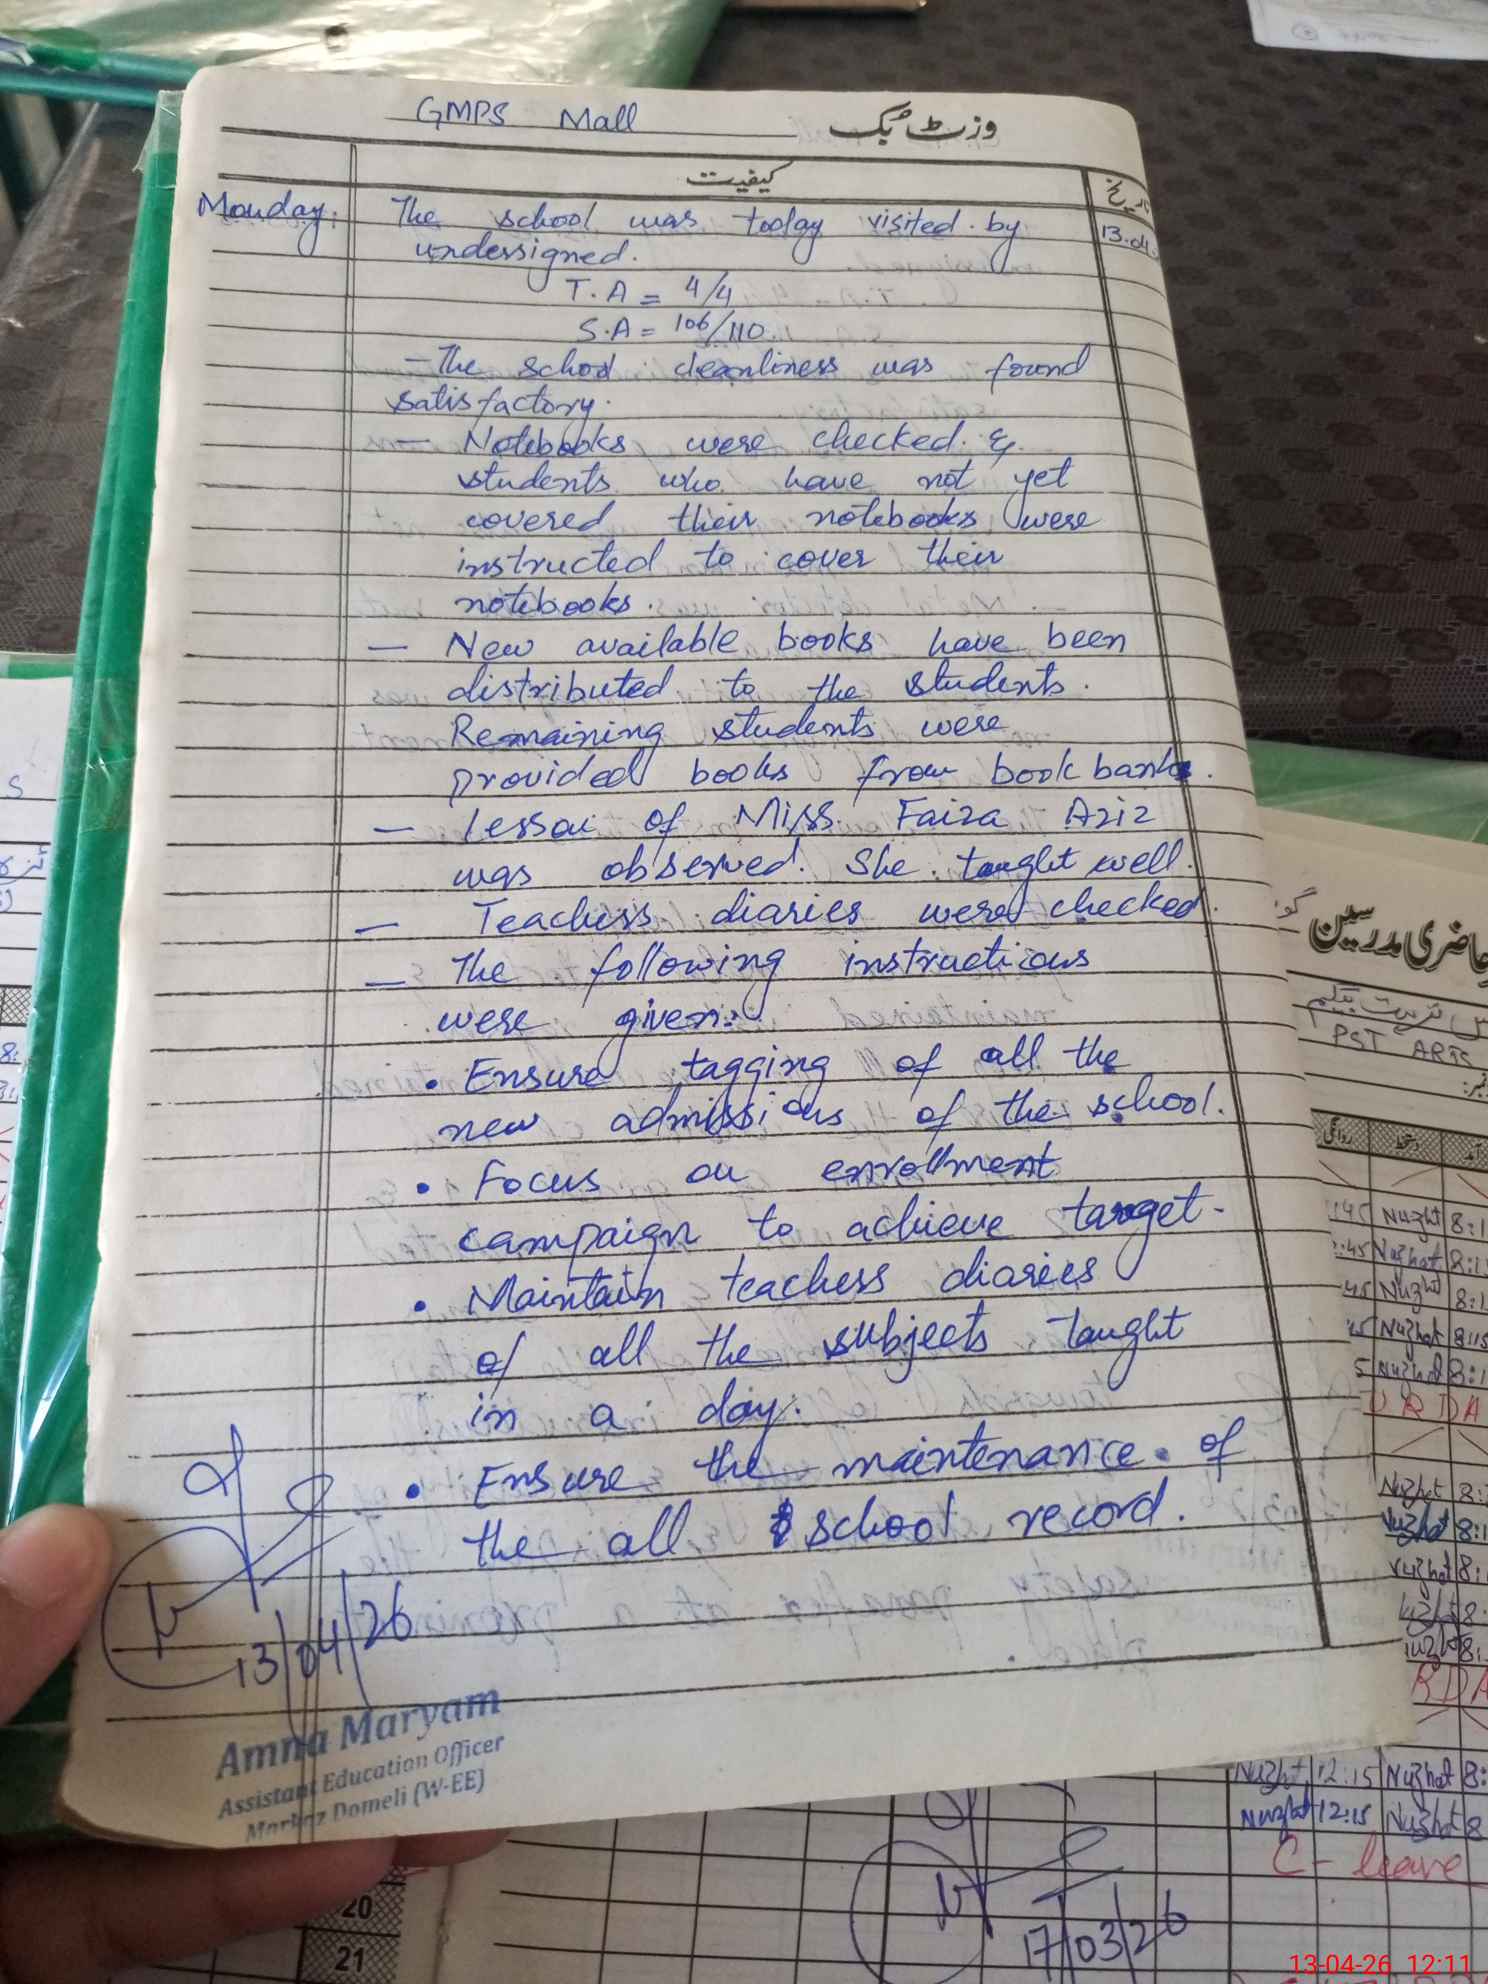 GMPS Mall وزٹ بک
کیفیت تاریخ
Monday. The school was today visited by 13.04.
undersigned.
T.A = 4/4
S.A = 106/110.
- The school cleanliness was found
satisfactory.
- Notebooks were checked &
students who have not yet
covered their notebooks were
instructed to cover their
notebooks.
- New available books have been
distributed to the students.
Remaining students were
provided books from book bank.
- Lesson of Miss Faiza Aziz
was observed. She taught well.
- Teachers diaries were checked.
- The following instructions
were given:
• Ensure tagging of all the
new admissions of the school.
• Focus on enrollment
campaign to achieve target.
• Maintain teachers diaries
of all the subjects taught
in a day.
• Ensure the maintenance of
the all school record.
13/04/26
Amna Maryam
Assistant Education Officer
Markaz Domeli (W-EE)
حاضری مدرسین
PST ARTS
روانگی دستخط آمد
Nuzhat 8:1
:45 Nuzhat 8:1
:45 Nuzhat 8:1
Nuzhat 8:15
Nuzhat 8:1
URDA
Nuzhat 8:
Nuzhat 8:1
Nuzhat 8:
RDA
Nuzht 12:15 Nuzhat 8:
Nuzhat 12:15 Nuzhat 8
C - leave
17/03/26
20
21
13-04-26 12:11